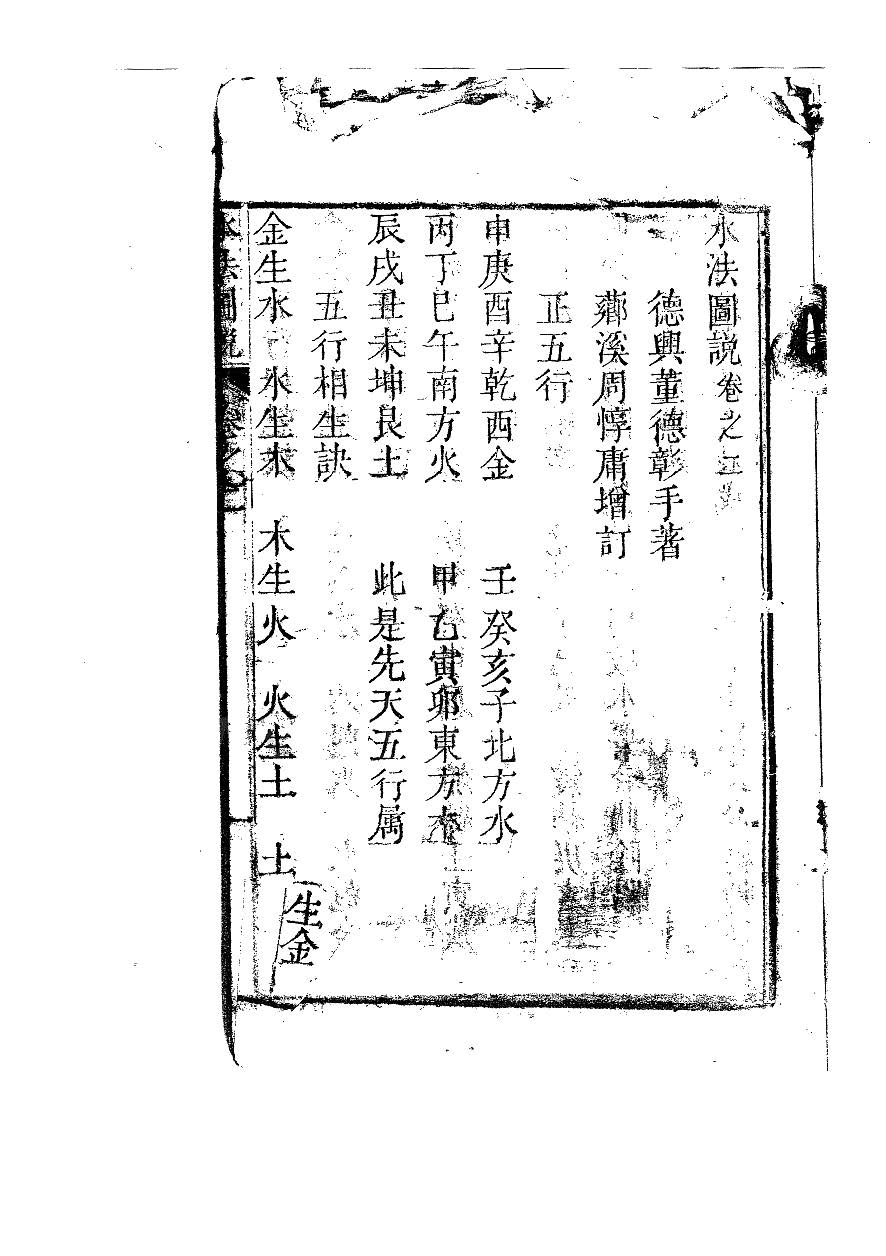 水法圖說卷之
德興董德彰手著
薌溪周惇庸增訂
正五行
申庚酉辛乾西金　壬癸亥子北方水
丙丁巳午南方火　甲乙寅卯東方木
辰戌丑未坤艮土　此是先天五行属
五行相生訣
金生水　水生木　木生火　火生土　土生金
水法圖說　卷之